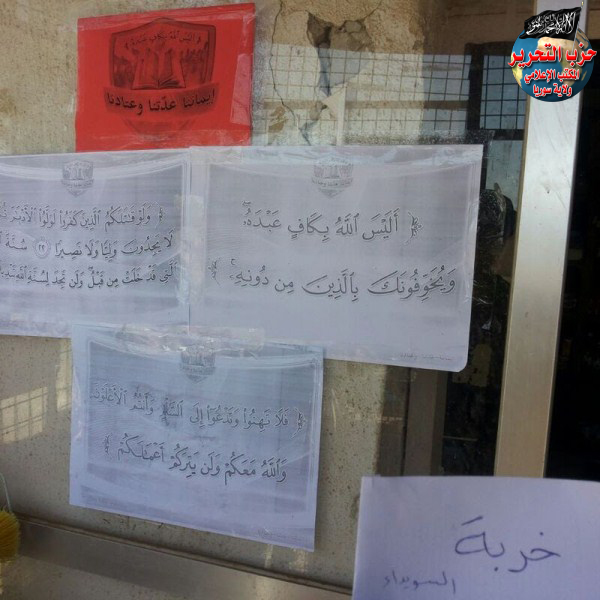 حزب التحرير
المكتب الإعلامي
ولاية سوريا
أليس الله بكاف عبده
إيماننا عدّتنا وعتادنا
﴿ أَلَيْسَ اللَّهُ بِكَافٍ عَبْدَهُ ۖ
وَيُخَوِّفُونَكَ بِالَّذِينَ مِن دُونِهِ ۚ ﴾
﴿ وَلَوْ قَاتَلَكُمُ الَّذِينَ كَفَرُوا لَوَلَّوُا الْأَدْبَارَ
لَا يَجِدُونَ وَلِيًّا وَلَا نَصِيرًا ﴿٢٢﴾ سُنَّةَ
الَّتِي قَدْ خَلَتْ مِن قَبْلُ وَلَن تَجِدَ لِسُنَّةِ اللَّهِ
﴿ فَلَا تَهِنُوا وَتَدْعُوا إِلَى السَّلْمِ وَأَنتُمُ الْأَعْلَوْنَ
وَاللَّهُ مَعَكُمْ وَلَن يَتِرَكُمْ أَعْمَالَكُمْ ﴾
خربة
السويداء